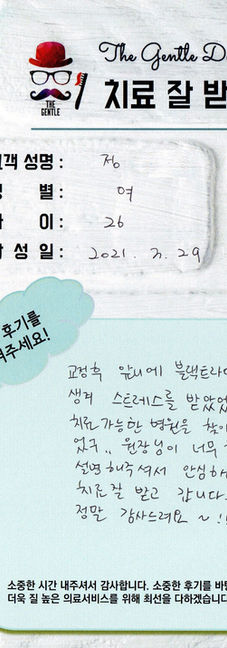 The Gentle D
THE
GENTLE
치료 잘 받
객 성명 : 정
별 : 여
이 : 26
성 일 : 2021. 3. 29
후기를
려주세요!
교정후 앞니에 블랙트라이
생겨 스트레스를 받았었
치료 가능한 병원을 찾아
었구.. 원장님이 너무
설명해주셔서 안심하
치료 잘 받고 갑니다.
정말 감사드려요 ~ !!
소중한 시간 내주셔서 감사합니다. 소중한 후기를 바탕
더욱 질 높은 의료서비스를 위해 최선을 다하겠습니다